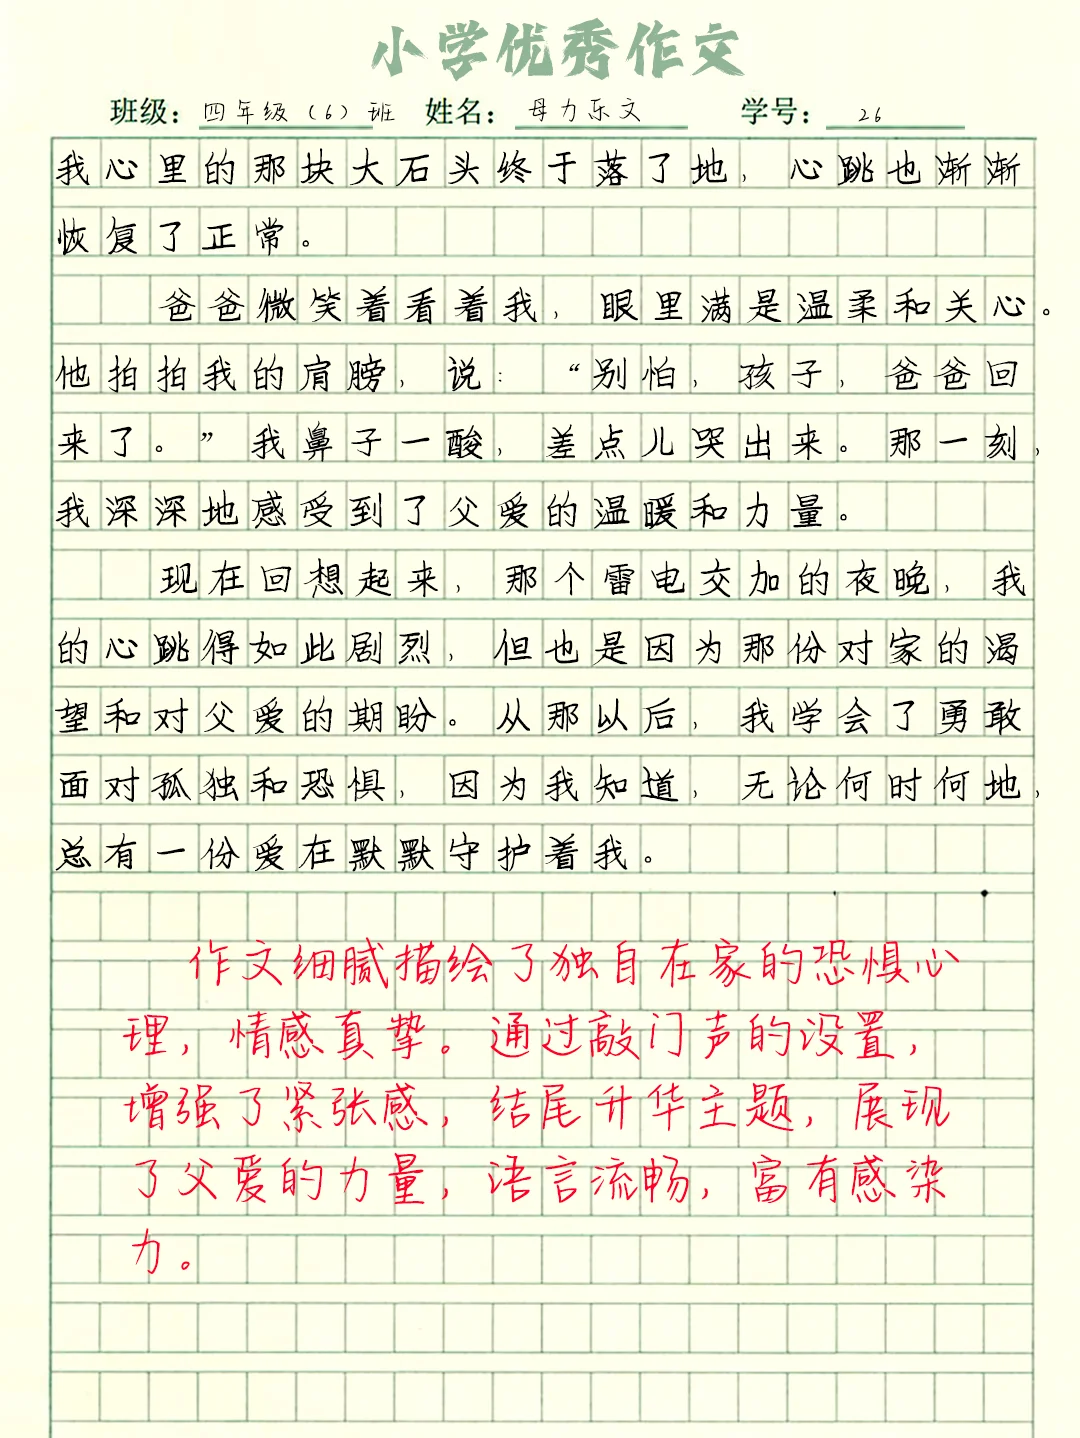 小学优秀作文
班级：四年级（6）班 姓名：母力乐文 学号：26
我心里的那块大石头终于落了地，心跳也渐渐
恢复了正常。
爸爸微笑着看着我，眼里满是温柔和关心。
他拍拍我的肩膀，说：“别怕，孩子，爸爸回
来了。”我鼻子一酸，差点儿哭出来。那一刻，
我深深地感受到了父爱的温暖和力量。
现在回想起来，那个雷电交加的夜晚，我
的心跳得如此剧烈，但也是因为那份对家的渴
望和对父爱的期盼。从那以后，我学会了勇敢
面对孤独和恐惧，因为我知道，无论何时何地，
总有一份爱在默默守护着我。
作文细腻描绘了独自在家的恐惧心
理，情感真挚。通过敲门声的设置，
增强了紧张感，结尾升华主题，展现
了父爱的力量，语言流畅，富有感染
力。